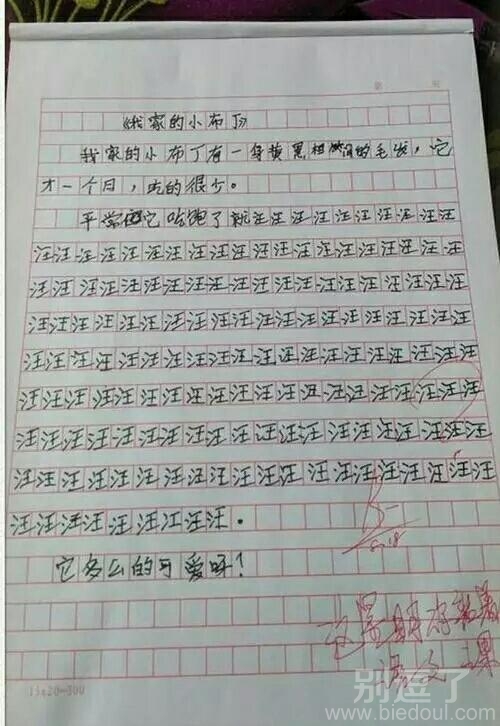 《我家的小布丁》
我家的小布丁有一身黄黑相间的毛发，它
才一个月，吃的很少。
平常它吃饱了就汪汪汪汪汪汪汪汪汪汪
汪汪汪汪汪汪汪汪汪汪汪汪汪汪汪汪汪汪汪汪
汪汪汪汪汪汪汪汪汪汪汪汪汪汪汪汪汪汪汪汪
汪汪汪汪汪汪汪汪汪汪汪汪汪汪汪汪汪汪汪汪
汪汪汪汪汪汪汪汪汪汪汪汪汪汪汪汪汪汪汪汪
汪汪汪汪汪汪汪汪汪汪汪汪汪汪汪汪汪汪汪汪
汪汪汪汪汪汪汪汪汪汪汪汪汪汪汪汪汪汪汪汪
汪汪汪汪汪汪汪汪汪汪汪汪汪汪汪汪汪汪汪汪
汪汪汪汪汪汪汪汪汪.
它多么的可爱呀！
语文课
15x20=300
别逗了
www.biedoul.com